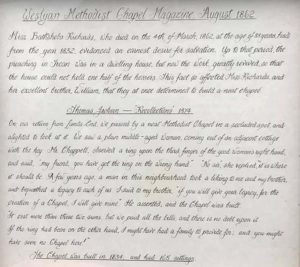 Wesleyan Methodist Chapel Magazine August 1862
Miss Bathsheba Richards, who died on the 4th of March, 1862, at the age of 84 years, had
from the year 1832, evidenced an earnest desire for salvation. Up to that period, the
preaching in was in a dwelling house, but now the work greatly revived, so that
the house could not hold one half of the hearers. This fact so affected Miss Richards and
her excellent brother, William, that they at once determined to build a neat chapel.
Thomas Jackson - Recollections 1874.
On our return from Lands End, we passed by a neat Methodist Chapel in a secluded spot, and
alighted to look at it. We saw a plain middle-aged woman, coming out of an adjacent cottage
with the key. Mr. Chappell, observed a ring upon the third finger of the good womans right hand,
and said, "my friend, you have got the ring on the wrong hand". "No sir," she replied, "it is where
it should be. A few years ago, a man in this neighbourhood took a liking to me and my brother,
and bequeathed a legacy to each of us. I said to my brother, "if you will give your legacy, for the
erection of a Chapel, I will give mine". He assented, and the Chapel was built.
It cost more than these two sums, but we paid all the bills, and there is no debt upon it.
If the ring had been on the other hand, I might have had a family to provide for; and you might
have seen no Chapel here!"
The Chapel was built in 1834, and had 168 settings